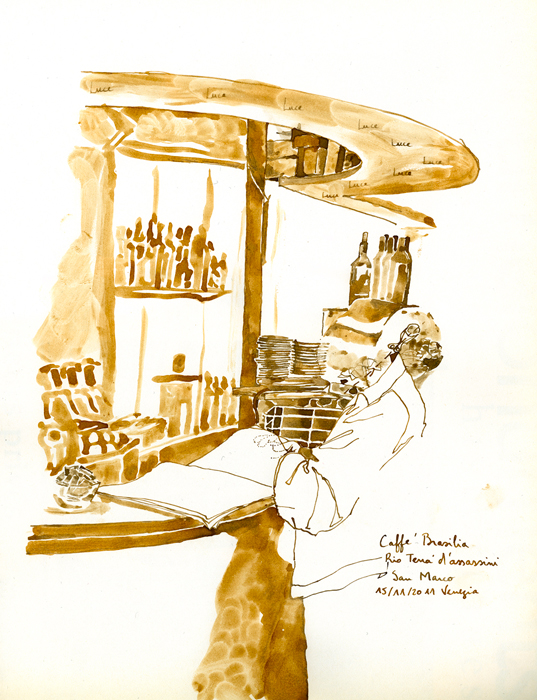 Luce
Luce
Luce
Luce
Luce
Luce
Luce
Luce
Luce
Caffe' Brasilia
Rio Terra' d'assassini
San Marco
15/11/2011 Venezia